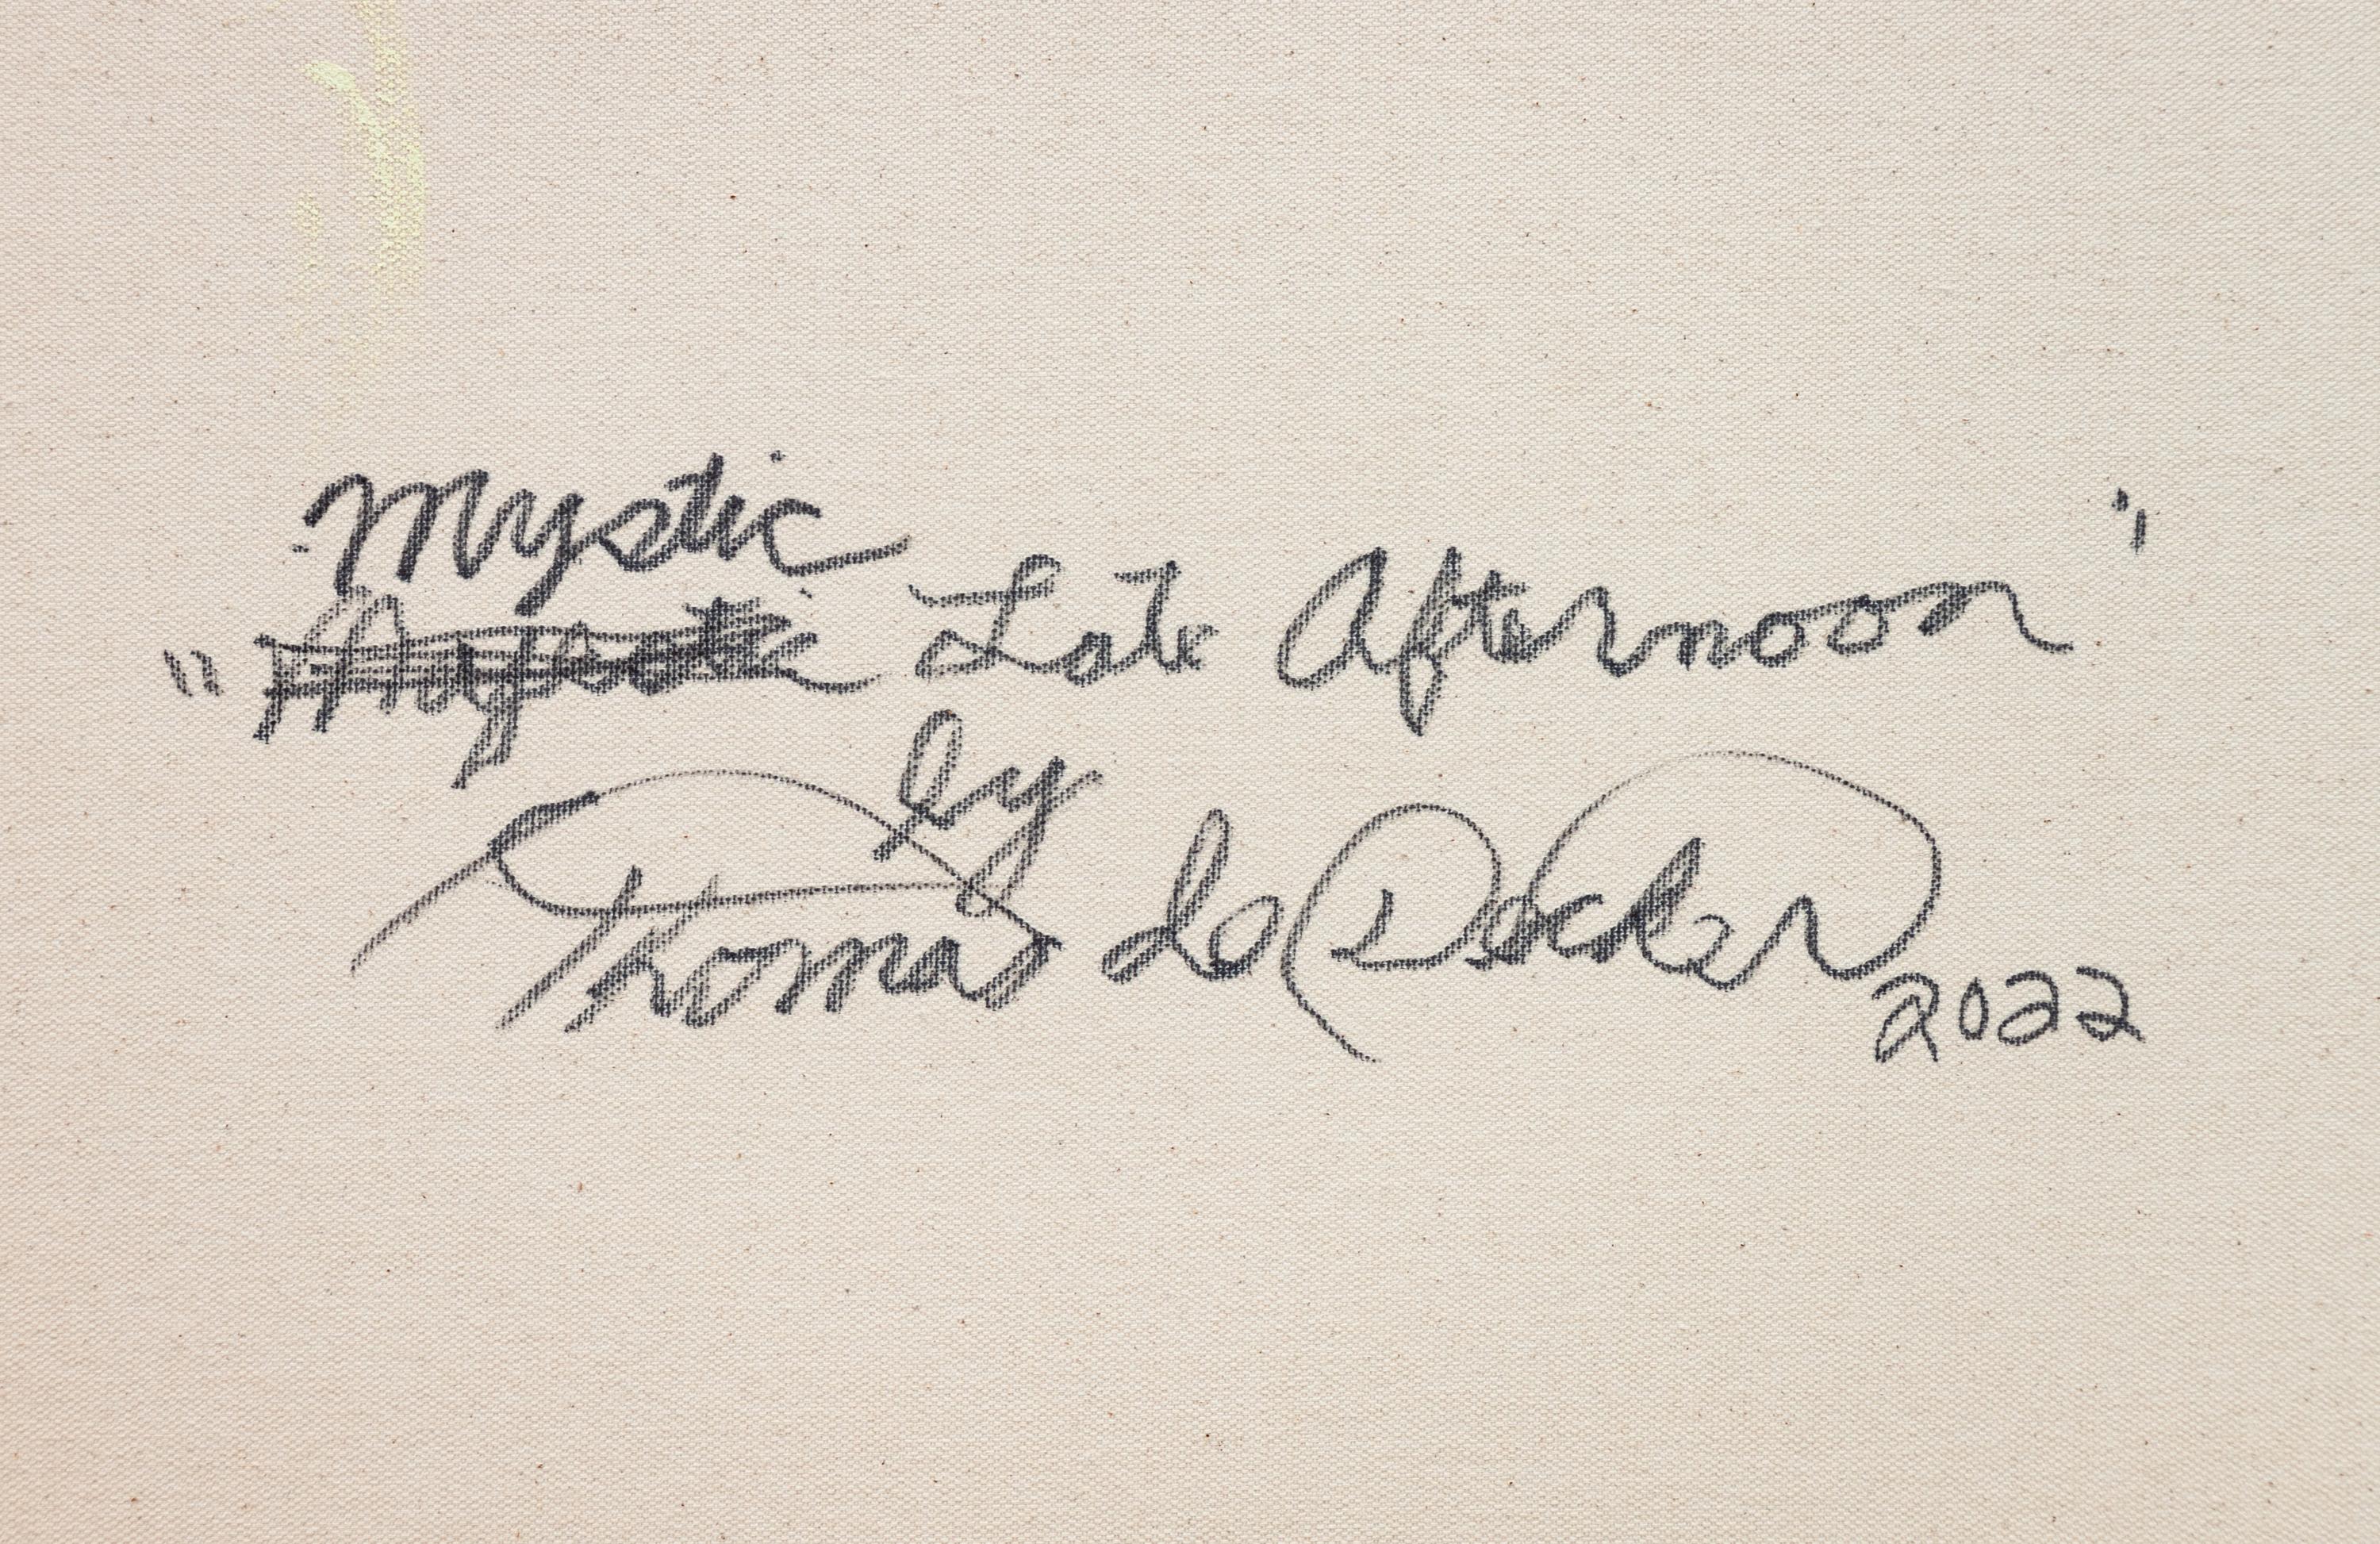 Mystic
" Late Afternoon"
by
Thomas de Decker
2022